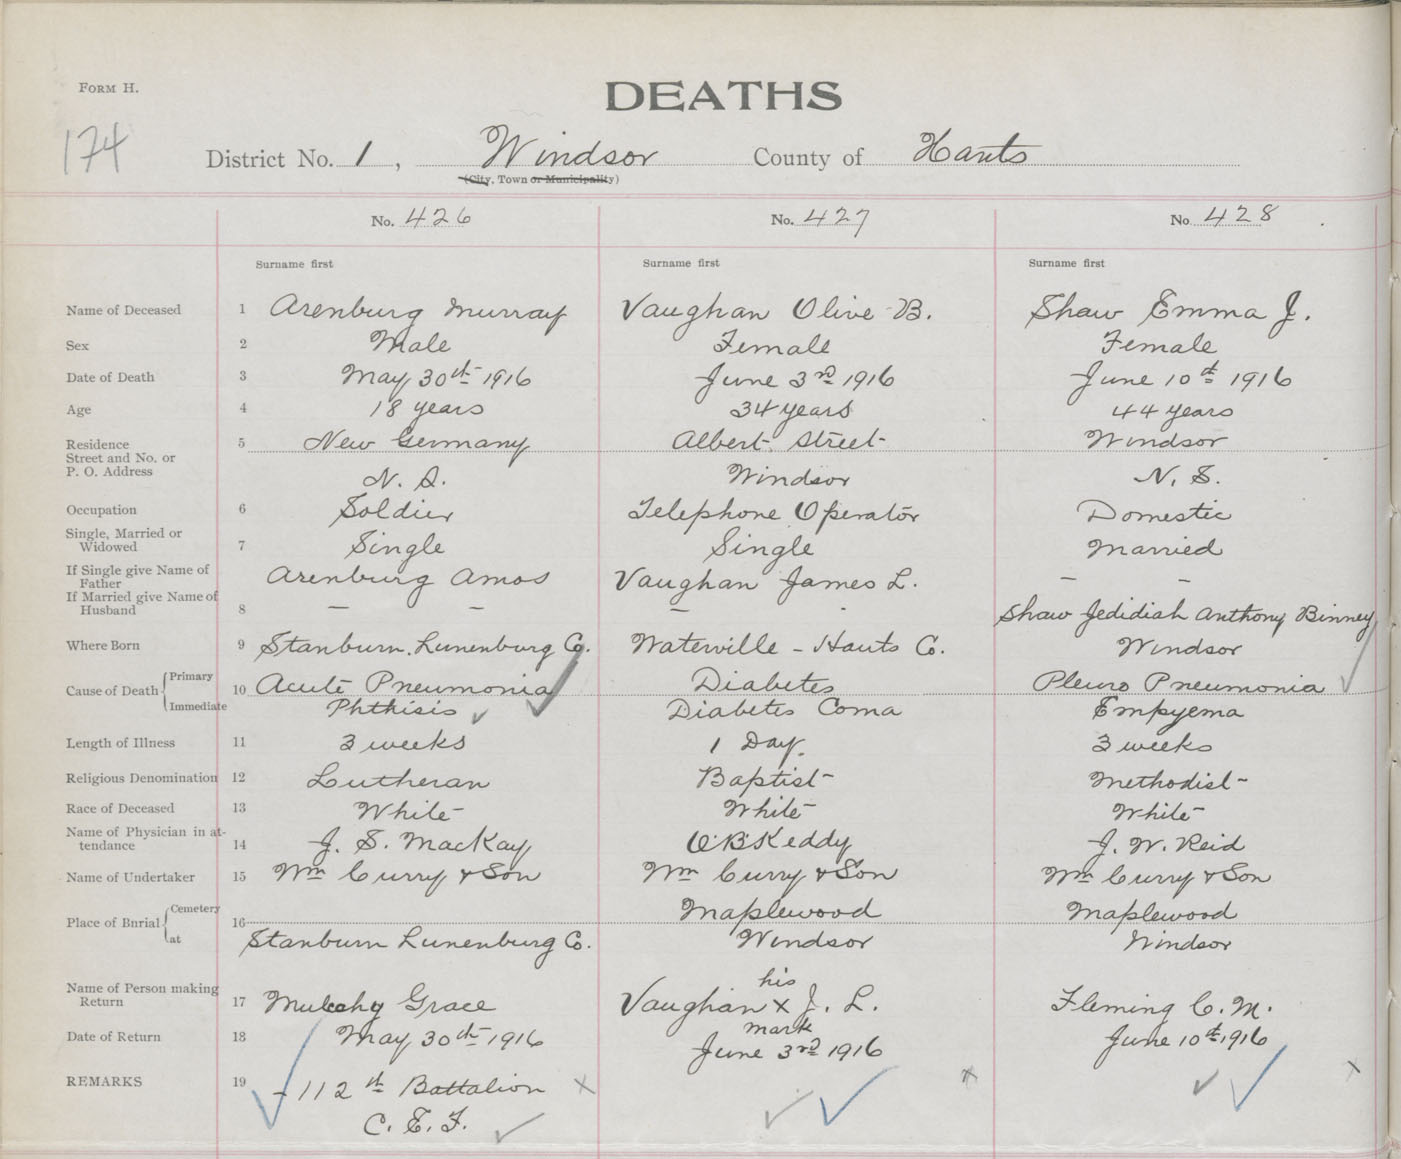 FORM H.
DEATHS
174
District No. 1, Windsor County of Hants
(City, Town or Municipality)
No. 426 No. 427 No. 428
Surname first Surname first Surname first
Name of Deceased 1 Arenburg Murray Vaughan Olive B. Shaw Emma J.
Sex 2 Male Female Female
Date of Death 3 May 30th 1916 June 3rd 1916 June 10th 1916
Age 4 18 years 34 years 44 years
Residence 5 New Germany Albert Street Windsor
Street and No. or
P. O. Address N. S. Windsor N. S.
Occupation 6 Soldier Telephone Operator Domestic
Single, Married or
Widowed 7 Single Single Married
If Single give Name of
Father Arenburg Amos Vaughan James L. – –
If Married give Name of
Husband 8 – – – Shaw Jedidiah Anthony Binney
Where Born 9 Stanburn. Lunenburg Co. Waterville – Hants Co. Windsor
Cause of Death Primary 10 Acute Pneumonia Diabetes Pleuro Pneumonia
Immediate Phthisis Diabetes Coma Empyema
Length of Illness 11 3 weeks 1 Day. 3 weeks
Religious Denomination 12 Lutheran Baptist Methodist
Race of Deceased 13 White White White
Name of Physician in at-
tendance 14 J. S. MacKay O.B. Keddy J. W. Reid
Name of Undertaker 15 Wm Curry & Son Wm Curry & Son Wm Curry & Son
Place of Burial Cemetery 16 Maplewood Maplewood
at Stanburn Lunenburg Co. Windsor Windsor
his
Name of Person making
Return 17 Mulcahy Grace Vaughan x J. L. Fleming C. M.
mark
Date of Return 18 May 30th 1916 June 3rd 1916 June 10th 1916
REMARKS 19 – 112th Battalion x x x
C. E. F.